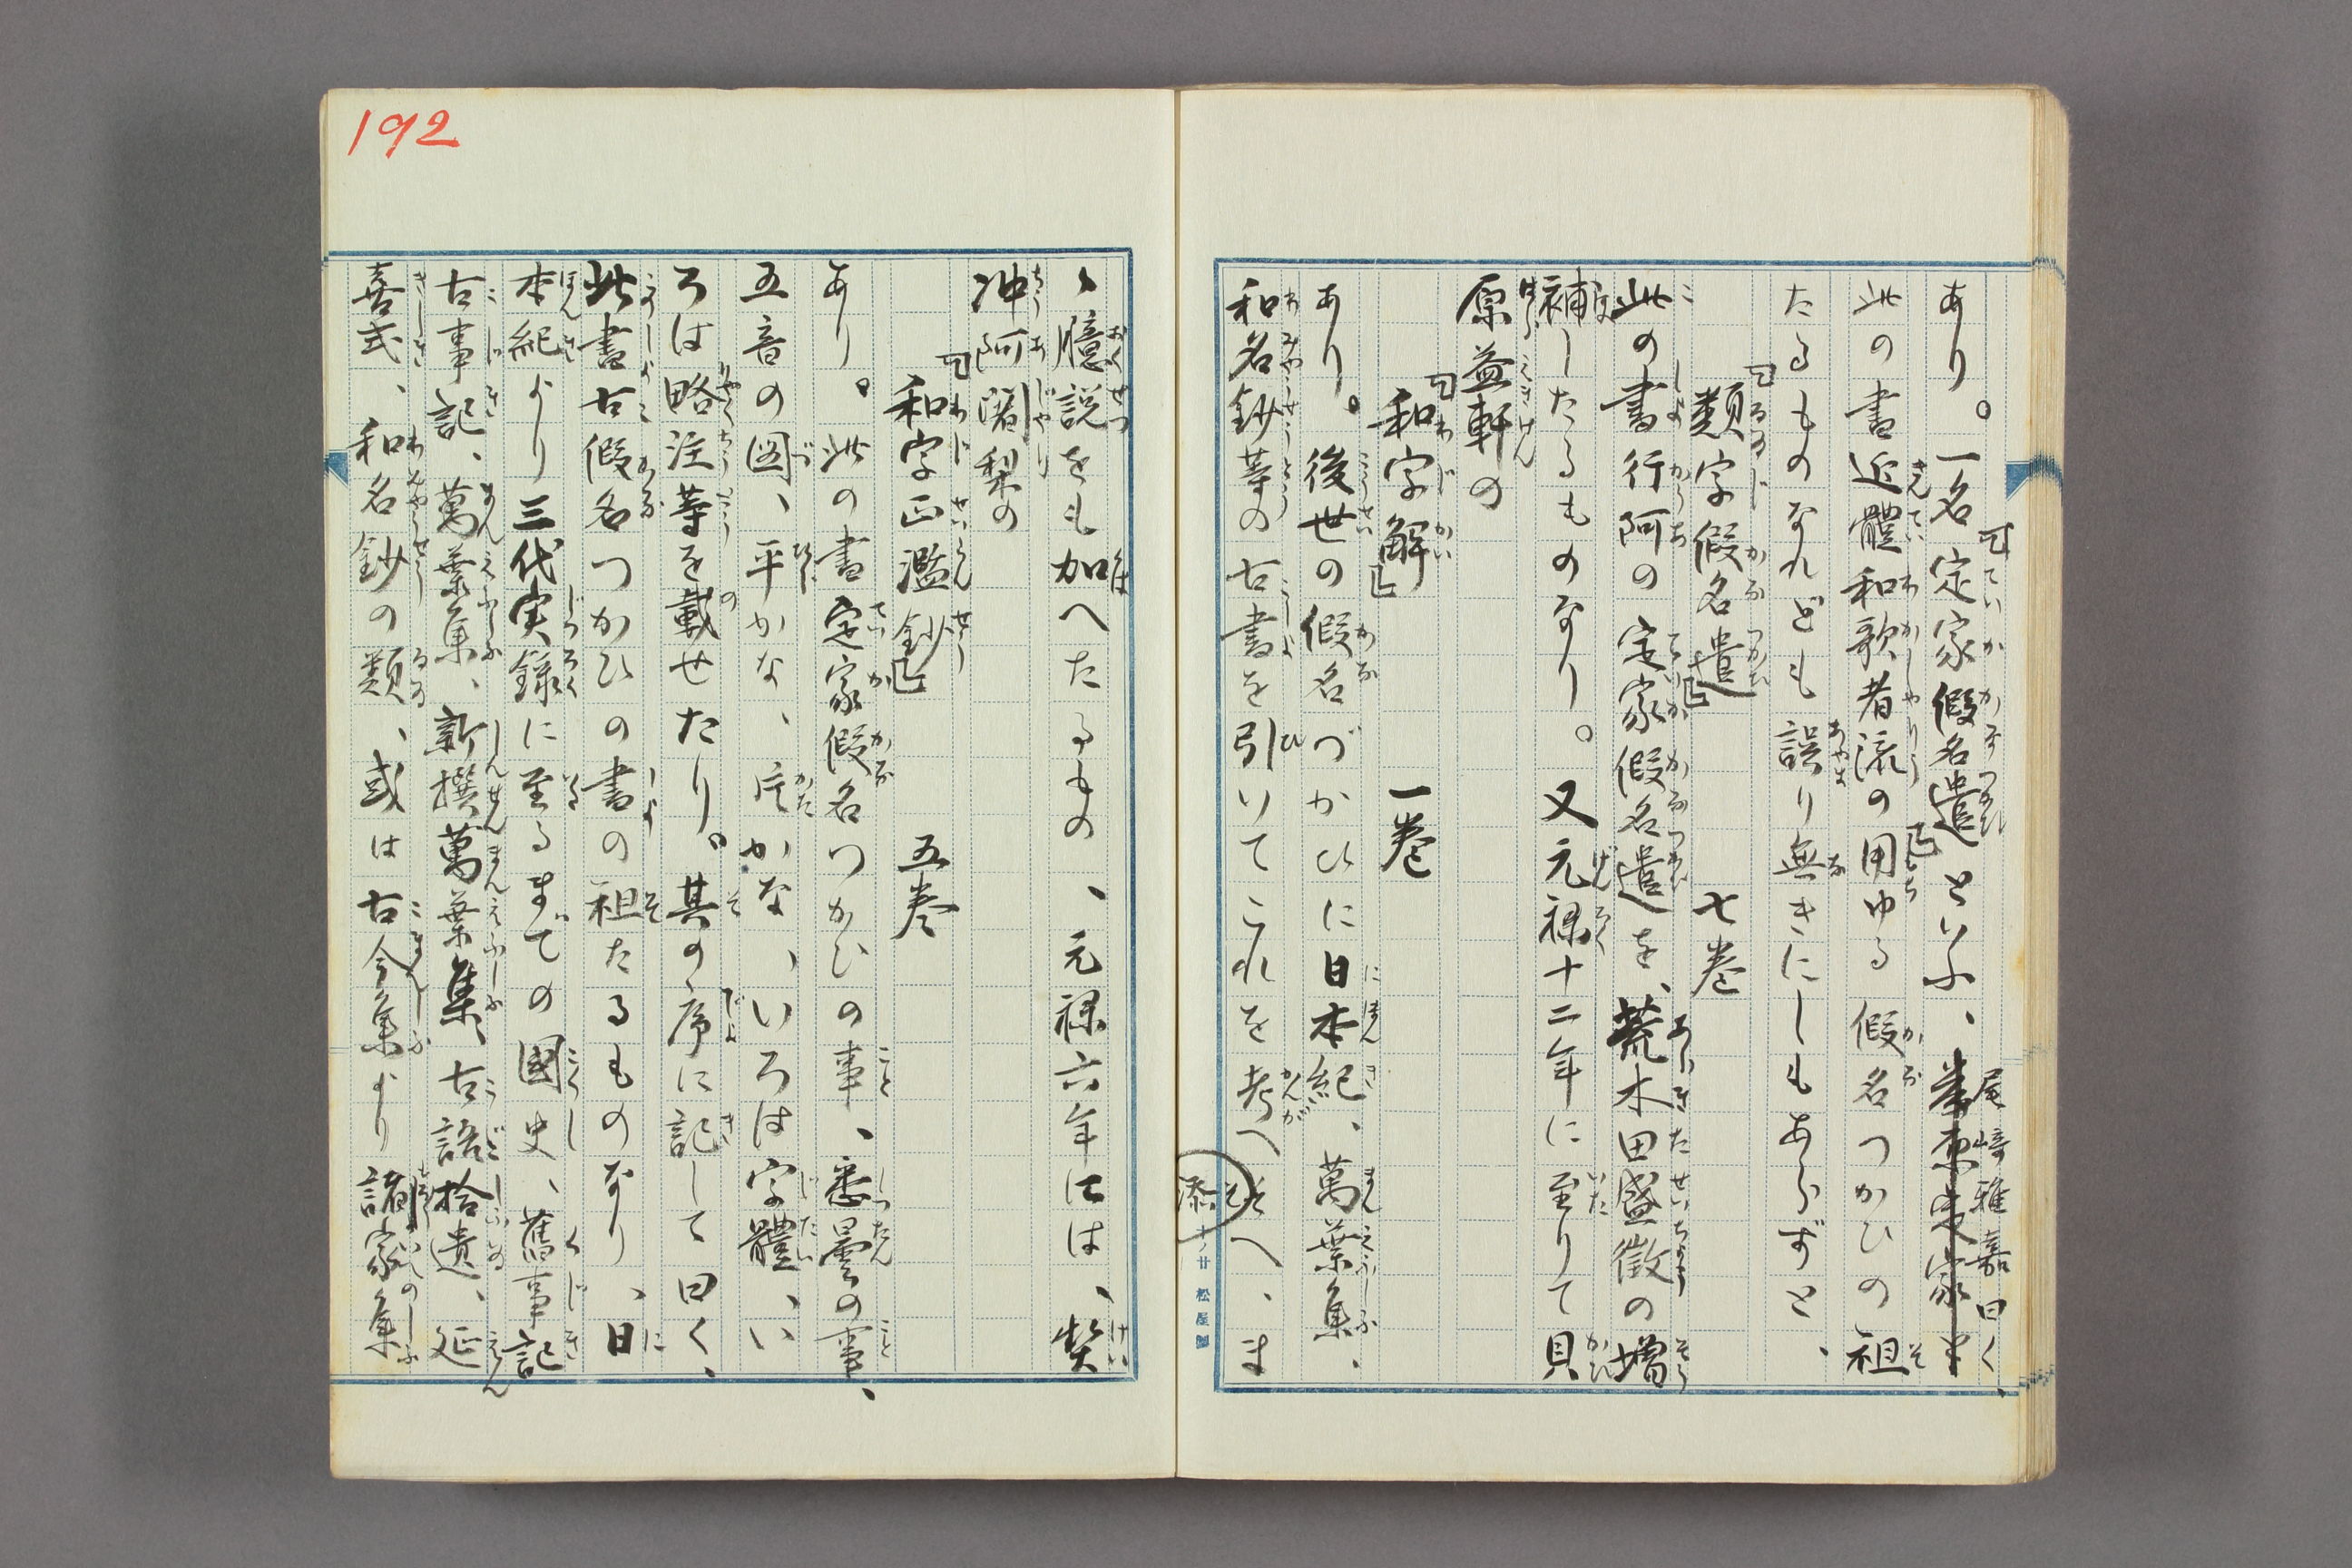 あり。一名定家假名遣といふ、尾崎雅嘉曰く、
此の書近體和歌者流の用ゆる假名つかひの祖
たるものなれども誤り無きにしもあらずと、
類字假名遣 七巻
此の書行阿の定家假名遣を、荒木田盛徴の増
補したるものなり。又元禄十二年に至りて貝
原益軒の
和字解 一巻
あり。後世の假名づかひに日本紀、萬葉集、
和名鈔等の古書を引いてこれを考へそへ、ま
添
十ノ廿 松屋製
192
ゝ臆説をも加へたるもの、元禄六年には、契
冲阿闍梨の
和字正濫鈔 五巻
あり。此の書定家假名つかひの事、悉曇の事、
五音の図、平かな、片かな、いろは字體、い
ろは略注等を載せたり。其の序に記して曰く、
此書古假名つかひの書の祖たるものなり、日
本紀より三代実録に至るまでの國史、舊事記
古事記、萬葉集、新撰萬葉集、古語拾遺、延
喜式、和名鈔の類、或は古今集より諸家集